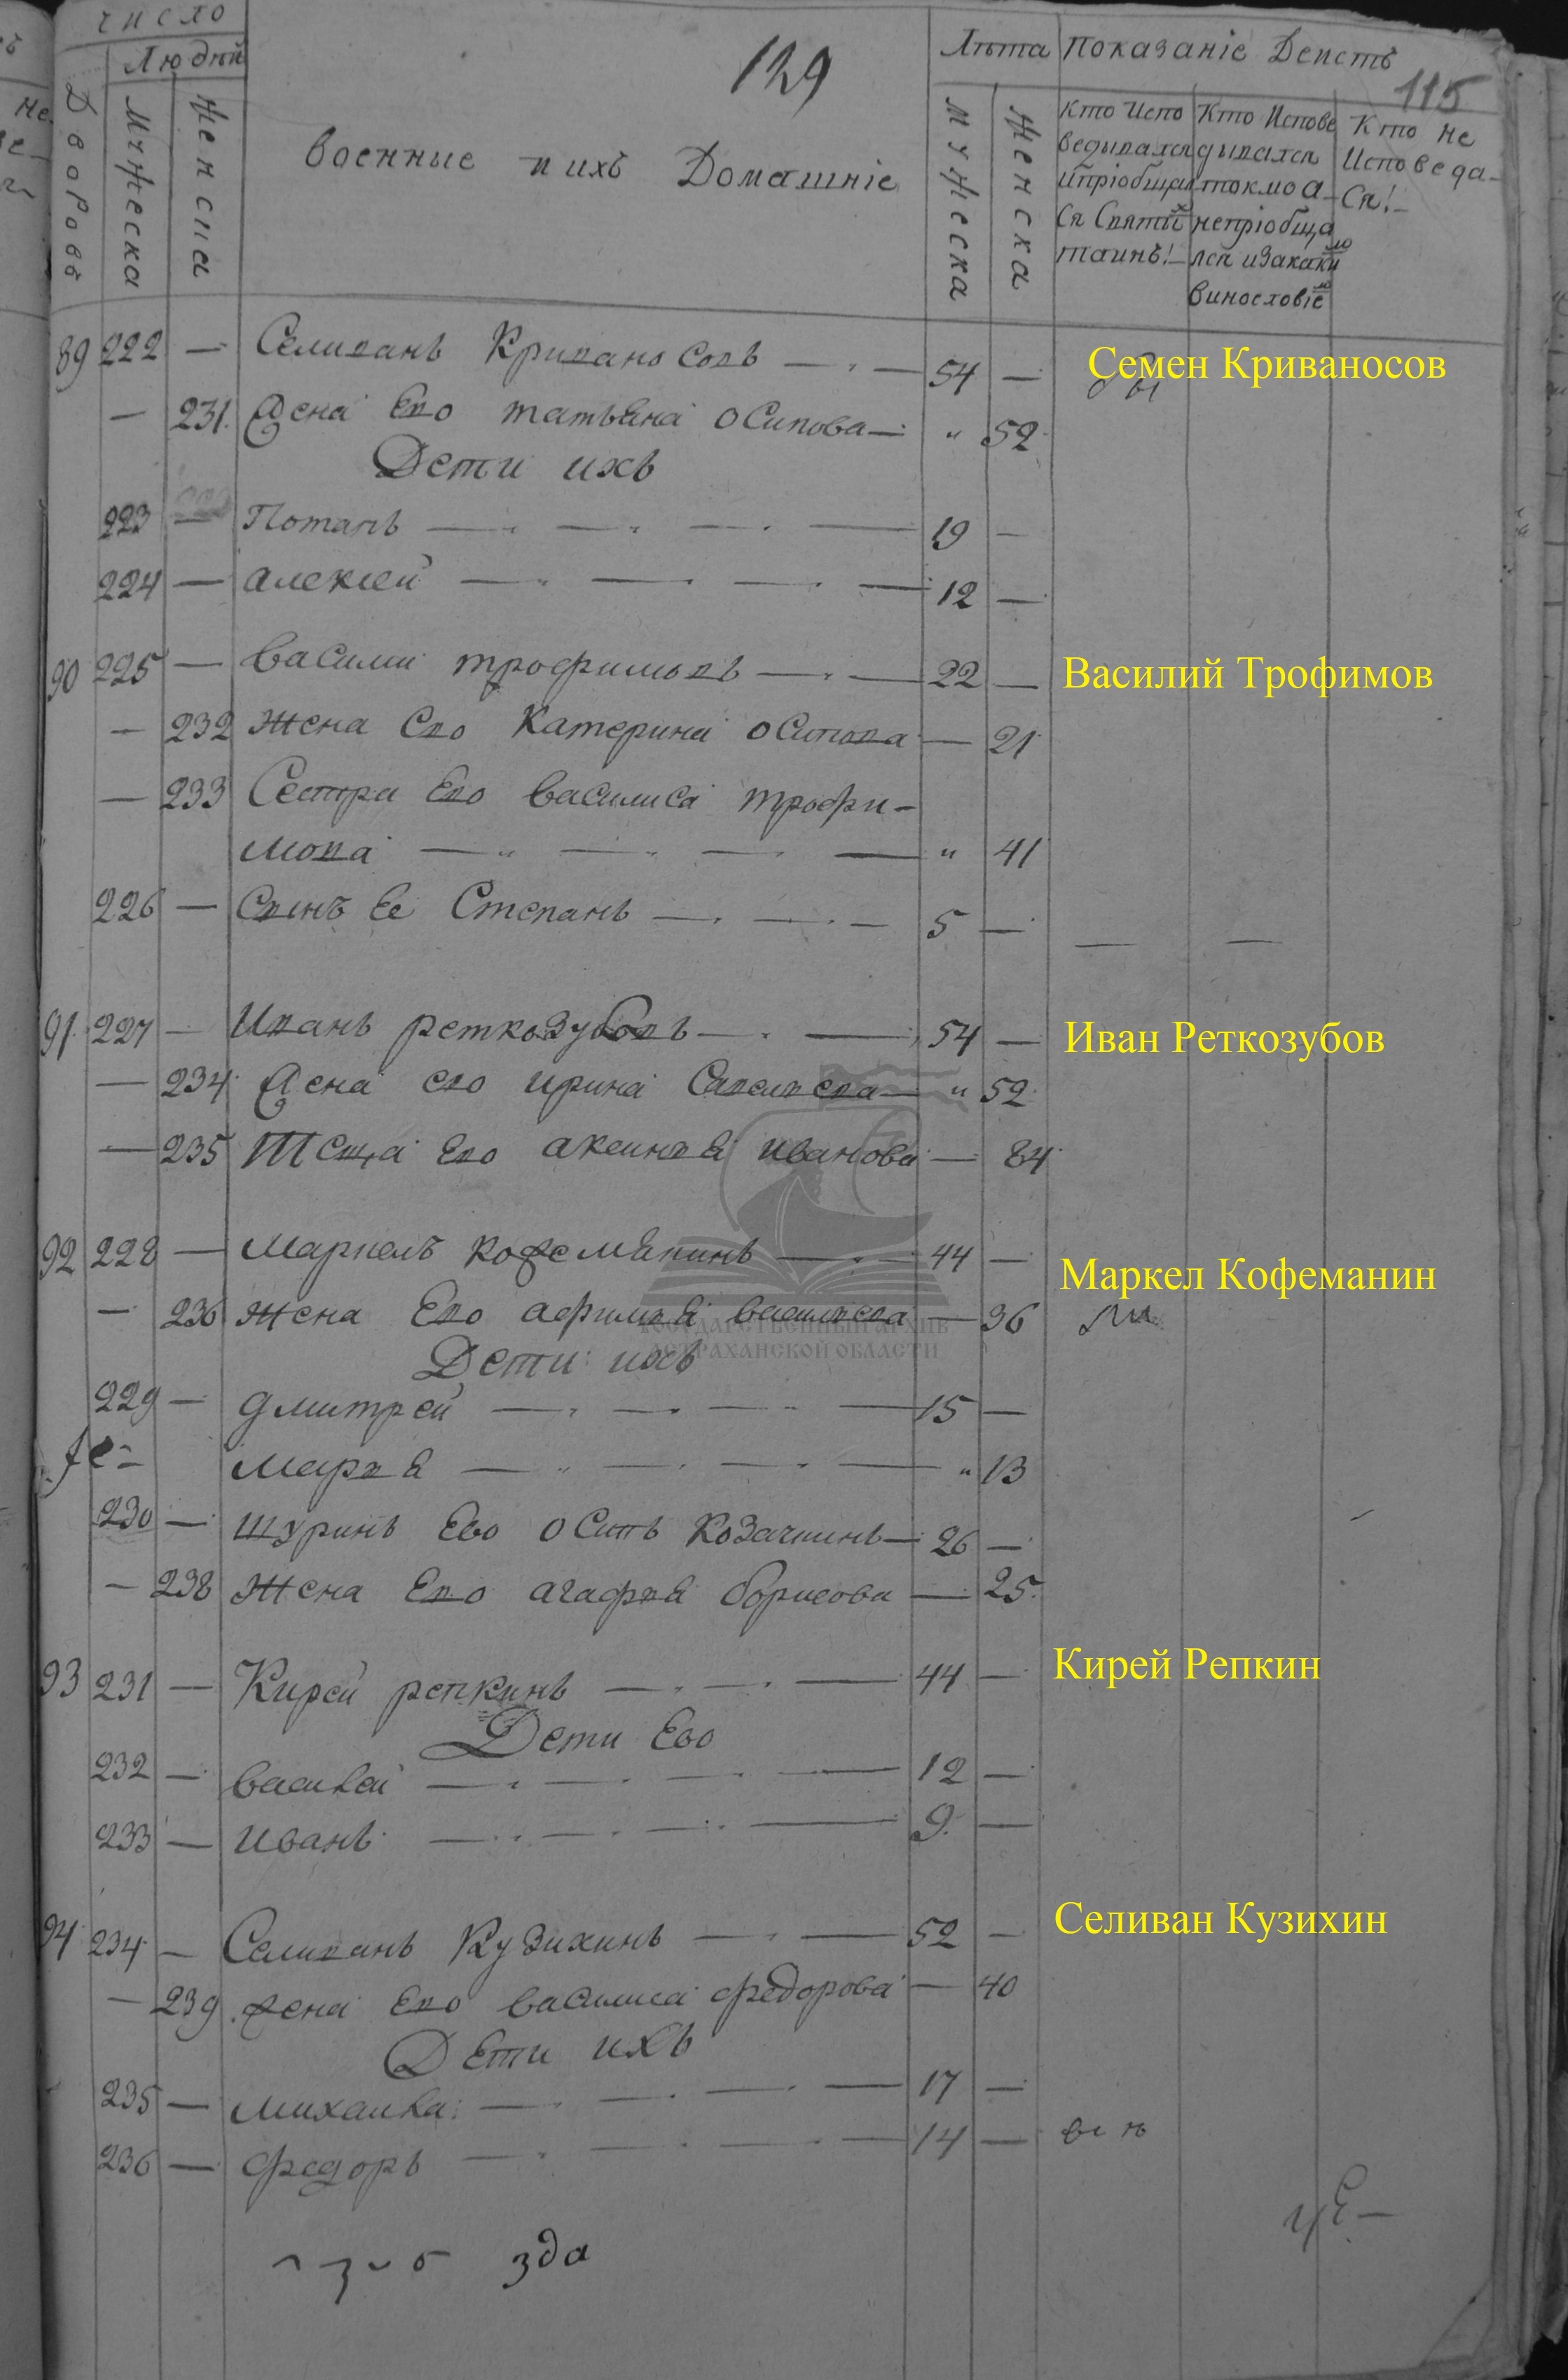 число
Людѣй
Дворовъ
Мужеска
Женска
129
военные и ихъ Домашніе
Лѣта
Показаніе Действъ
115
мужеска
женска
кто Испо
ведывался
ипріобщал
ся Святых
таинъ!
Кто Испове
дывался
токмо а
непріобща
лся изакаки
винословіе
Кто не
Исповеда-
ся!
89 222 — Селиванъ Криваносовъ — 54 — Семен Криваносов
— 231. Жена Ево татьяна осипова — „ 52
Дети ихъ
223 — Потапъ — 19 —
224 — алексей — 12 —
90 225 — василии трофимовъ — 22 — Василий Трофимов
— 232 жена Ево Катерина осипова — 21
— 233 Сестра Ево василиса трофи-
мова — „ 41
226 — Сынъ Ее Степанъ — 5 —
91 227 — Иванъ реткозубовъ — 54 — Иван Реткозубов
— 234 Жена ево ирина Савельева — „ 52
— 235 Теща Ево аксинья иванова — 84
92 228 — маркелъ кофемянинъ — 44 — Маркел Кофеманин
— 236 жена Ево афимья васильева — 36
ГОСУДАРСТВЕННЫЙ АРХИВ
АСТРАХАНСКОЙ ОБЛАСТИ
Дети ихъ
229 — дмитрей — 15 —
марья — „ 13
230 — шуринъ Ево осипъ Козачкинъ — 26 —
— 238 жена Ево агафья борисова — 25
93 231 — Кирей репкинъ — 44 — Кирей Репкин
Дети Ево
232 — василей — 12 —
233 — иванъ — 9 —
94 234 — Селиванъ Кузихинъ — 52 — Селиван Кузихин
— 239 жена Ево василиса федорова — 40
Дети ихъ
235 — михаила — 17 —
236 — федоръ — 14 —